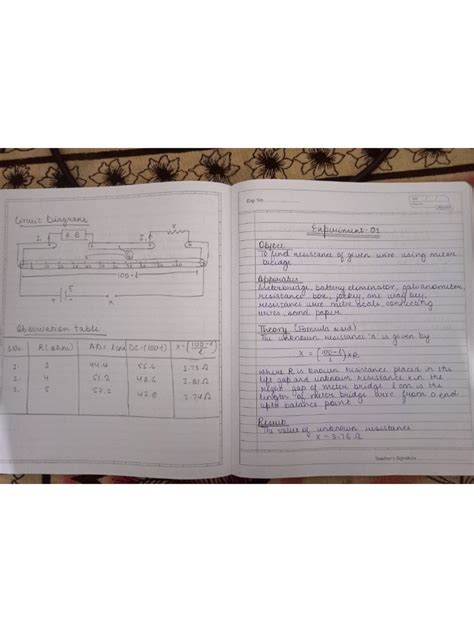 Circuit Diagram
R.B
X
100-l
E
K
Observation table
S.No. R(ohm) AD = l cm DC = (100-l) X = (100-l/l)
1. 3 44.4 55.6 3.75 Ω
2. 4 51.2 48.8 3.81 Ω
3. 5 57.2 42.8 3.74 Ω
Exp No.
Experiment - 01
Object
To find resistance of given wire using metre
bridge
Apparatus
Meterbridge, battery eliminator, galvanometer,
resistance box, jockey, one way key,
resistance wire metre scale connecting
wires, sand paper.
Theory (Formula used)
The unknown resistance 'x' is given by
X = (100-l/l) x R
where R is known resistance placed in the
left gap and unknown resistance x in the
right gap of meter bridge l cm is the
length of meter bridge wire from 0 end
upto balance point.
Result
The value of unknown resistance
X = 3.76 Ω
Teacher's Signature